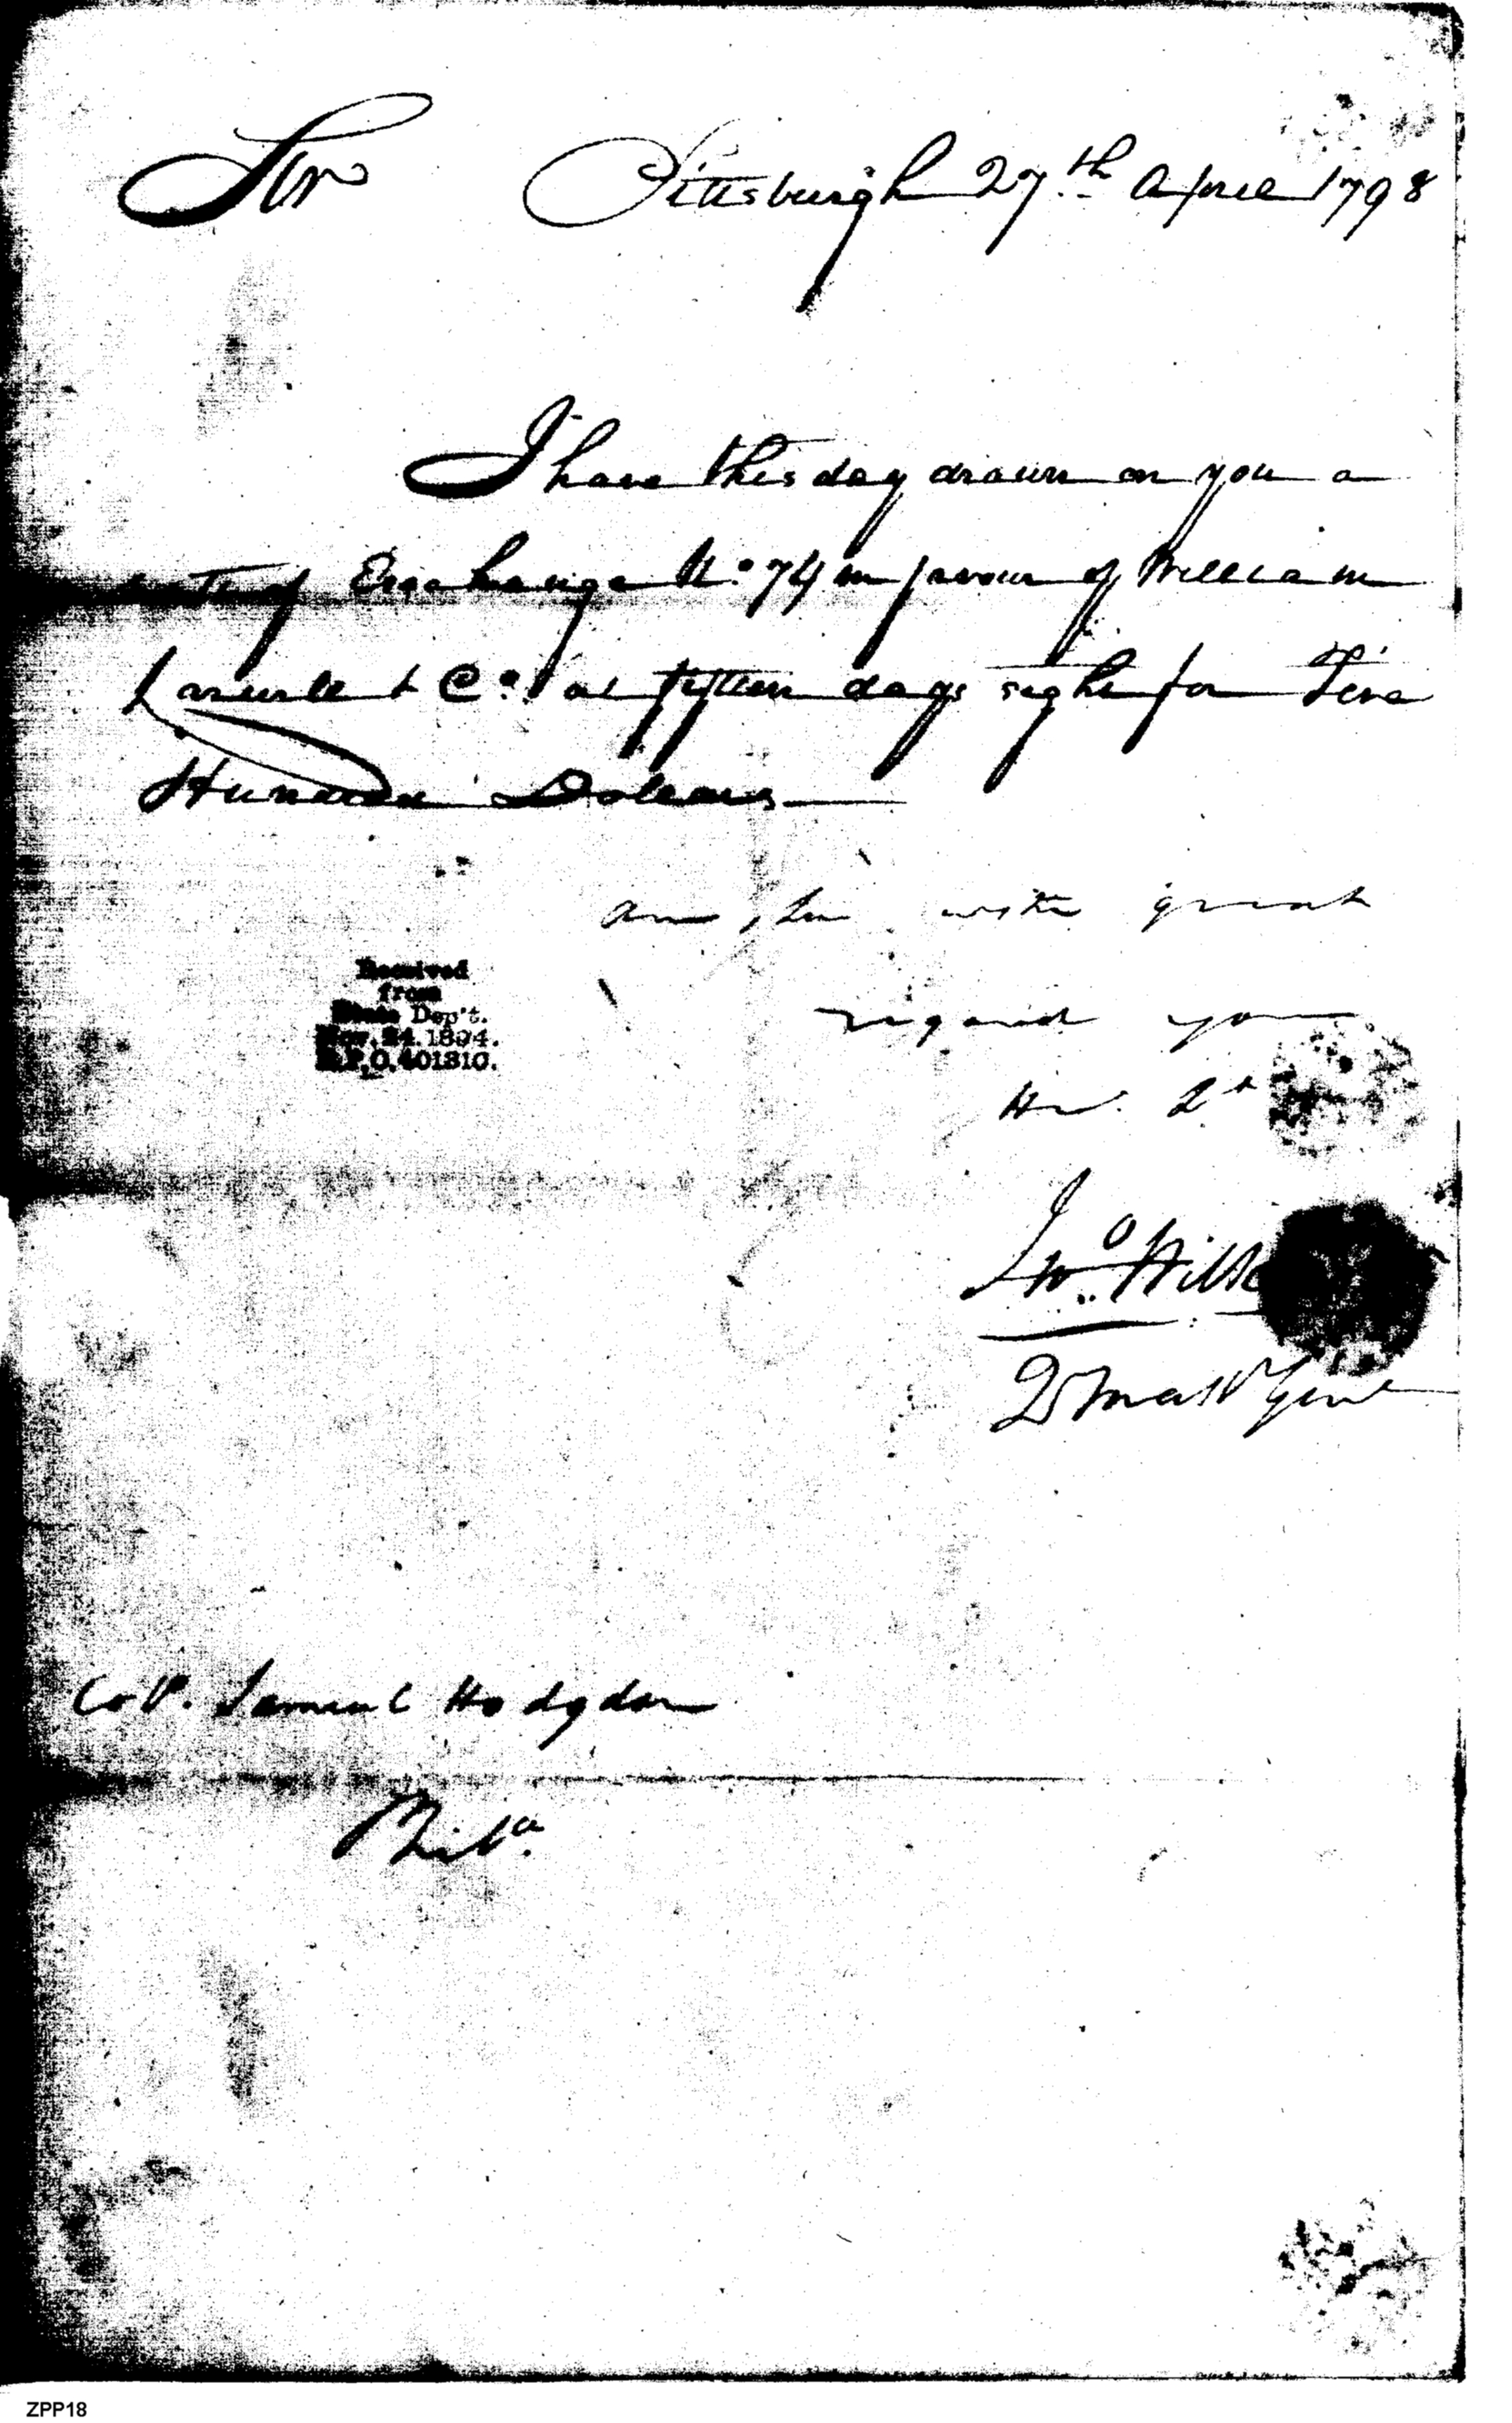 Sir Pittsburgh 27th April 1798
I have this day drawn on you a
of Exchange No. 74 in favour of William
& Co. at fifteen days sight for Five
Hundred Dollars
am, Sir with great
regard your
St
Jno. Wilk
Qr Mastr Genl
Received
from
State Dep't.
Nov. 24 1894.
R.P.O. 401810.
Coll. Samuel Hodgdon
Phila.
ZPP18